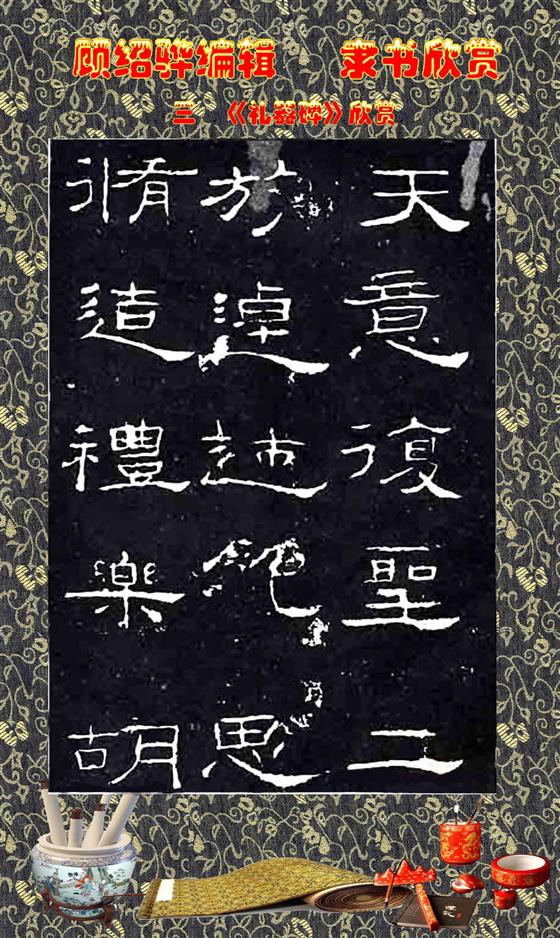 顾绍骅编辑 隶书欣赏
三 《礼器碑》欣赏
天意復聖二
族逴越絶思
脩造禮樂胡